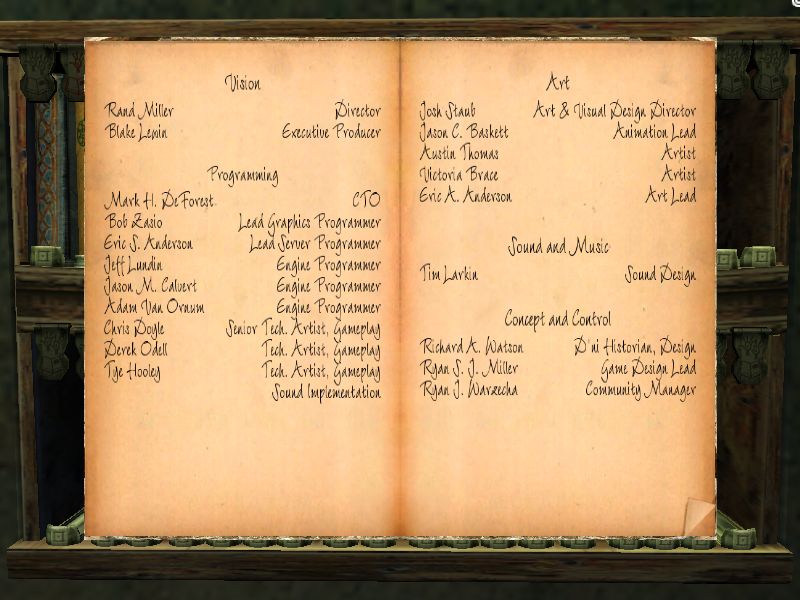 Vision
Rand Miller Director
Blake Lewin Executive Producer
Programming
Mark H. DeForest CTO
Bob Zasio Lead Graphics Programmer
Eric S. Anderson Lead Server Programmer
Jeff Lundin Engine Programmer
Jason M. Calvert Engine Programmer
Adam Van Ornum Engine Programmer
Chris Doyle Senior Tech. Artist, Gameplay
Derek Odell Tech. Artist, Gameplay
Tye Hooley Tech. Artist, Gameplay
Sound Implementation
Art
Josh Staub Art & Visual Design Director
Jason C. Baskett Animation Lead
Austin Thomas Artist
Victoria Brace Artist
Eric A. Anderson Art Lead
Sound and Music
Tim Larkin Sound Design
Concept and Control
Richard A. Watson D'ni Historian, Design
Ryan S. J. Miller Game Design Lead
Ryan J. Warzecha Community Manager